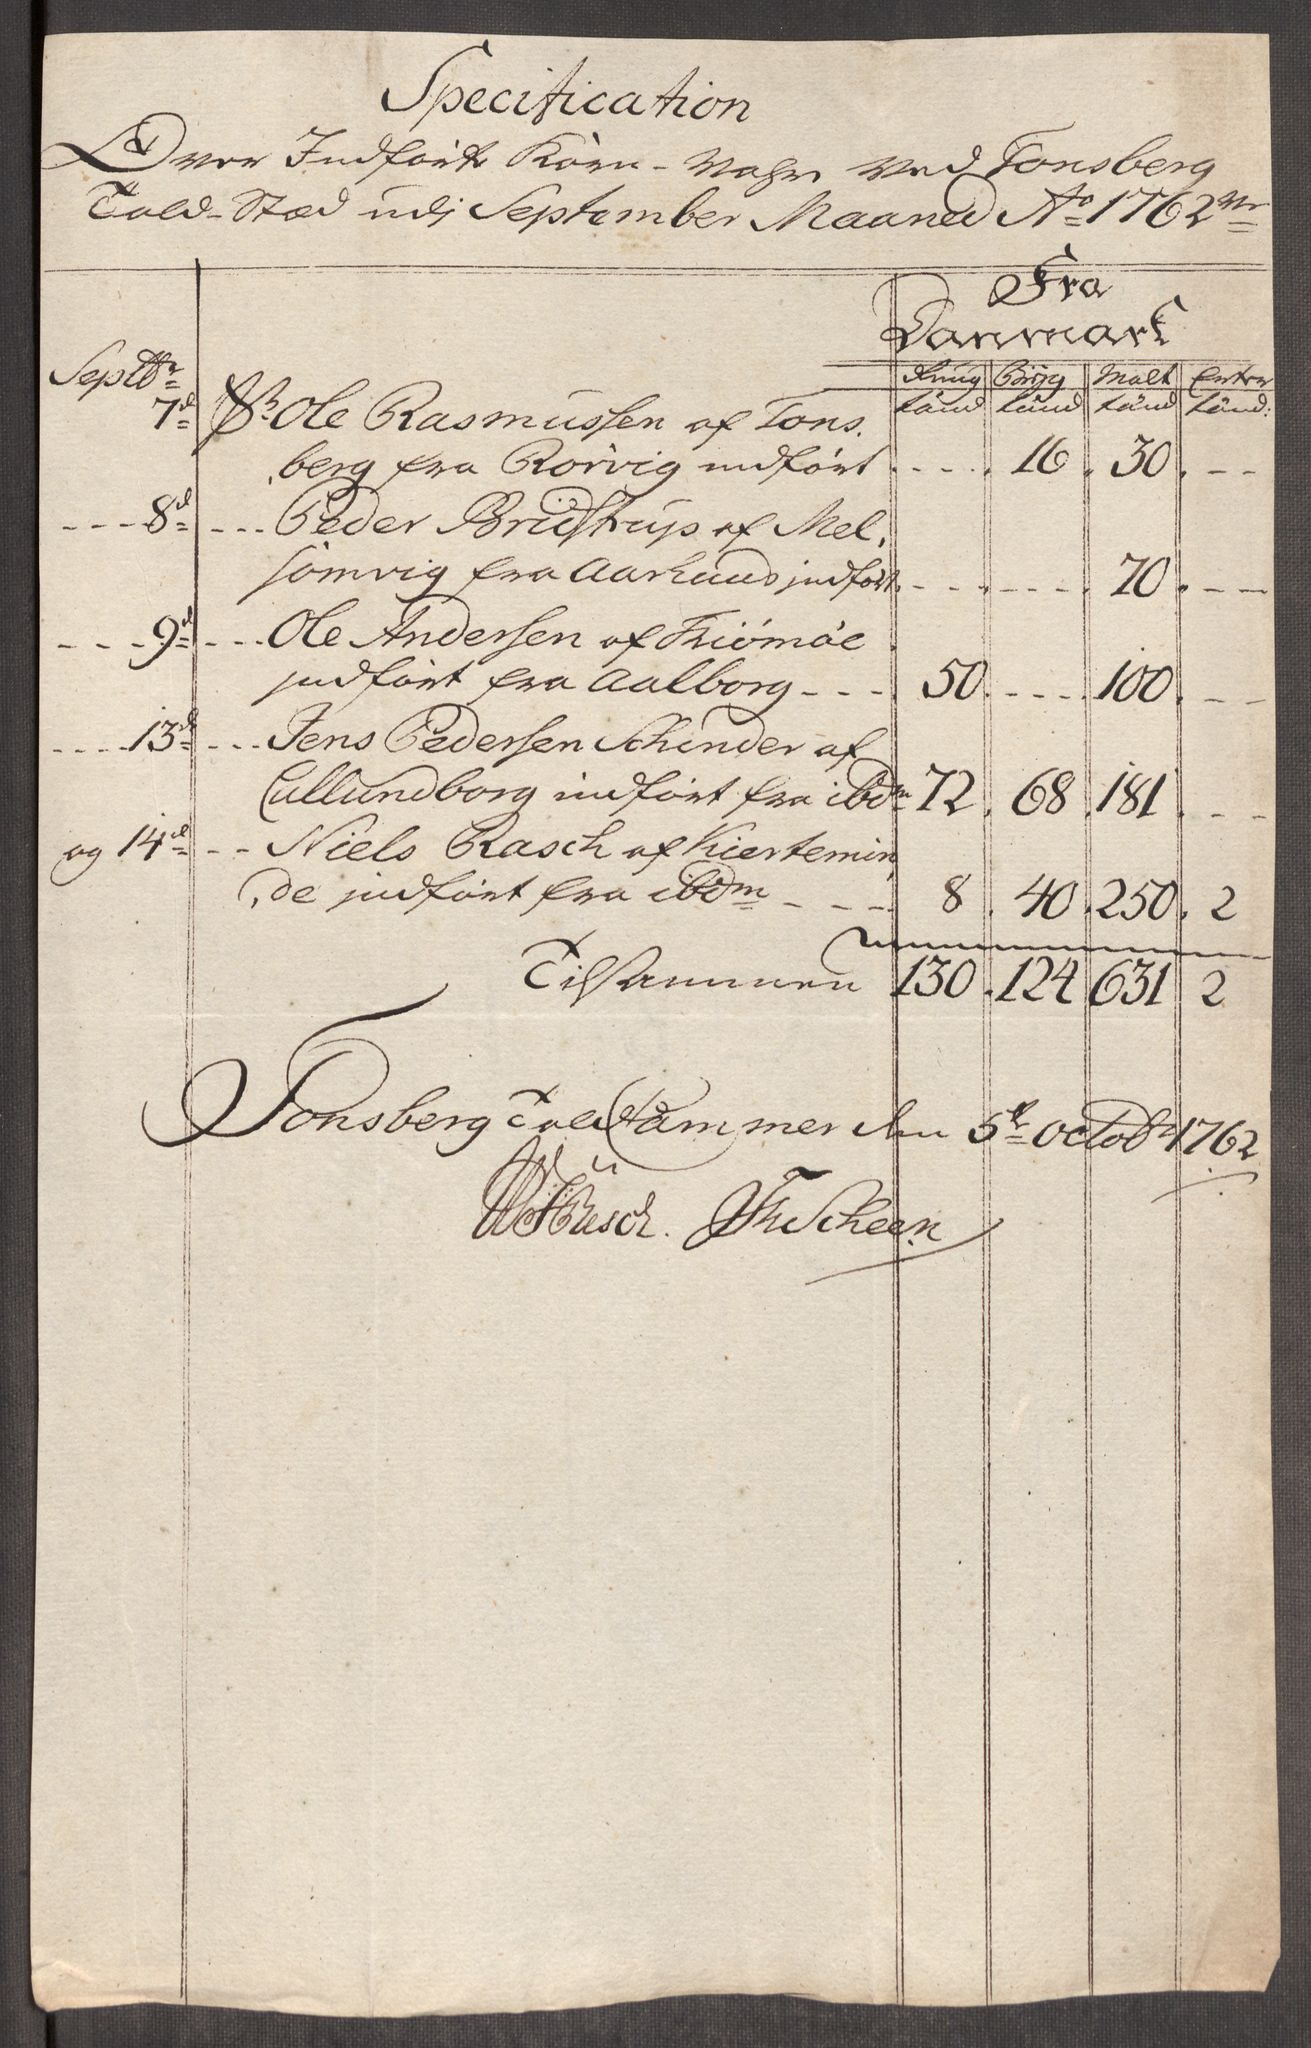 Specification
Over Indförte Korn-Vahre ved Tonsberg
Told-Stæd udj September Maaned Ao 1762
Fra
Danmark
Septbr
Rug Bÿg Malt Erter
tönd tönd tönd tönd:
7d Sr Ole Rasmussen af Tons
berg fra Rorvig indfört - - - - 16 . 30 . - -
- - - 8d - - - Peder Bridstrup af Mel,
sömvig fra Aarhuus indfört - - - - - - - 70 . - - -
- - - 9d - - - Ole Andersen af Tiömöe
indfört fra Aalborg - - - - 50 - - - - 100 . - -
- - - - 13d - - - Jens Pedersen Schinder af
Callundborg indfört fra ibdm 72 . 68 . 181 . - -
og 14d - - - Niels Rasch af Kiertemin
de indfört fra ibdm - - - - 8 . 40 . 250 . 2
Tilsammen 130 . 124 631 2
Tonsberg Told Cammer den 5te Octobr 1762
Rusch. Scheen